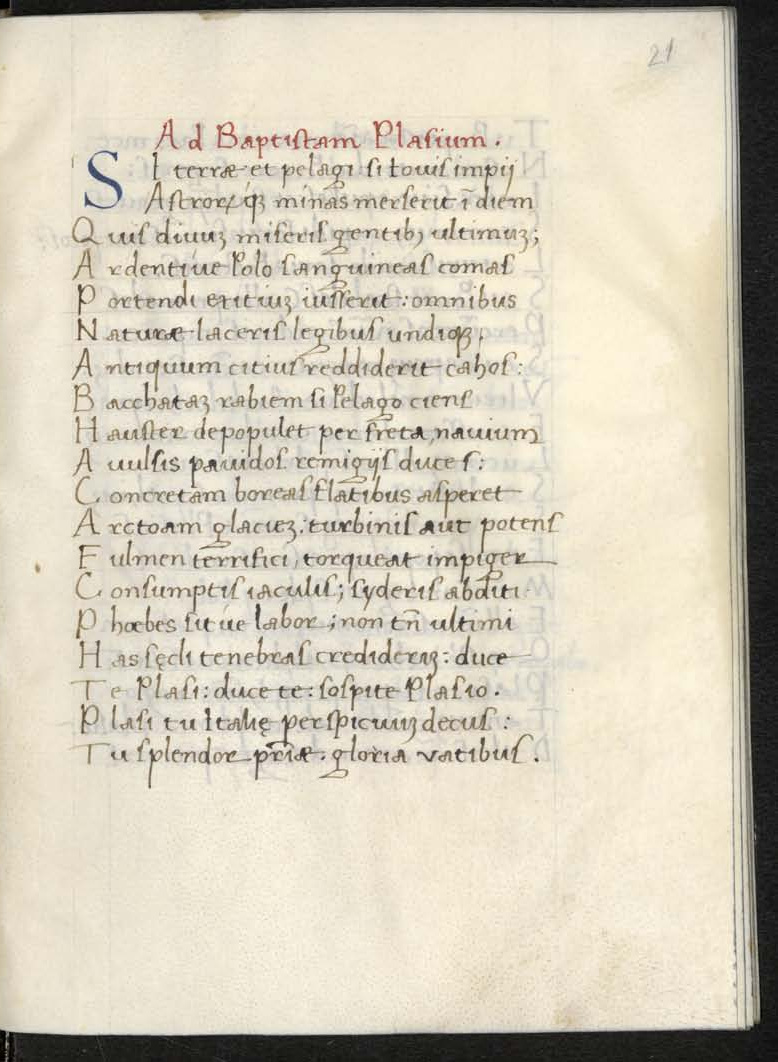 21
Ad Baptistam Plasium.
SI terræ et pelagi si Iouis impij
Astrorꝝ q̃ꝫ minas merserit ĩ diem
Quis diuuꝫ miseris gentibꝫ ultimuꝫ;
Ardentiue Polo sanguineas comas
Portendi exitiuꝫ iusserit: omnibus
Naturæ laceris legibus undiqꝫ.
Antiquum citius reddiderit cahos:
Bacchataꝫ rabiem si Pelago ciens
Hauster depopulet per freta nauium
Auulsis pauidos remigijs duces:
Concretam boreas flatibus asperet
Arctoam glacieꝫ: turbinis aut potens
Fulmen terrifici, torqueat impiger
Consumptis iaculis; syderis abditi
Phœbes sit úe labor; non tñ ultimi
Has sęcli tenebras credideriꝫ: duce
Te Plasi: duce te: sospite Plasio.
Plasi tu Italię perspicuuꝫ decus:
Tu splendor pr̃iæ. gloria vatibus.